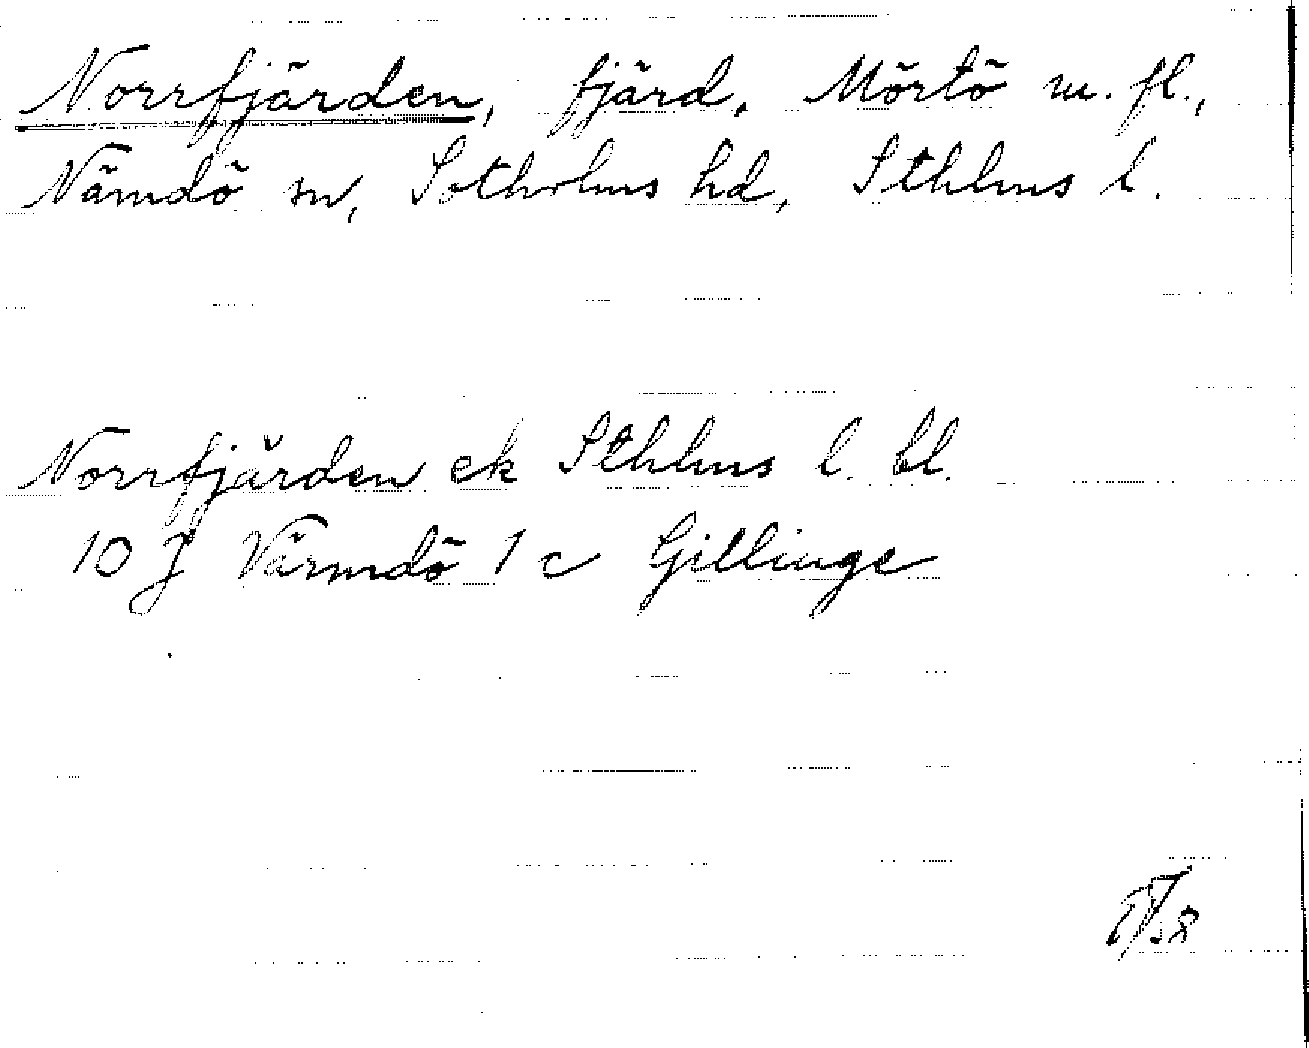 Norrfjärden, fjärd, Mörtö m. fl.,
Nämdö sn, Sotholms hd, Sthlms l.
Norrfjärden ek Sthlms l. bl.
10 J Värmdö 1 c Gillinge